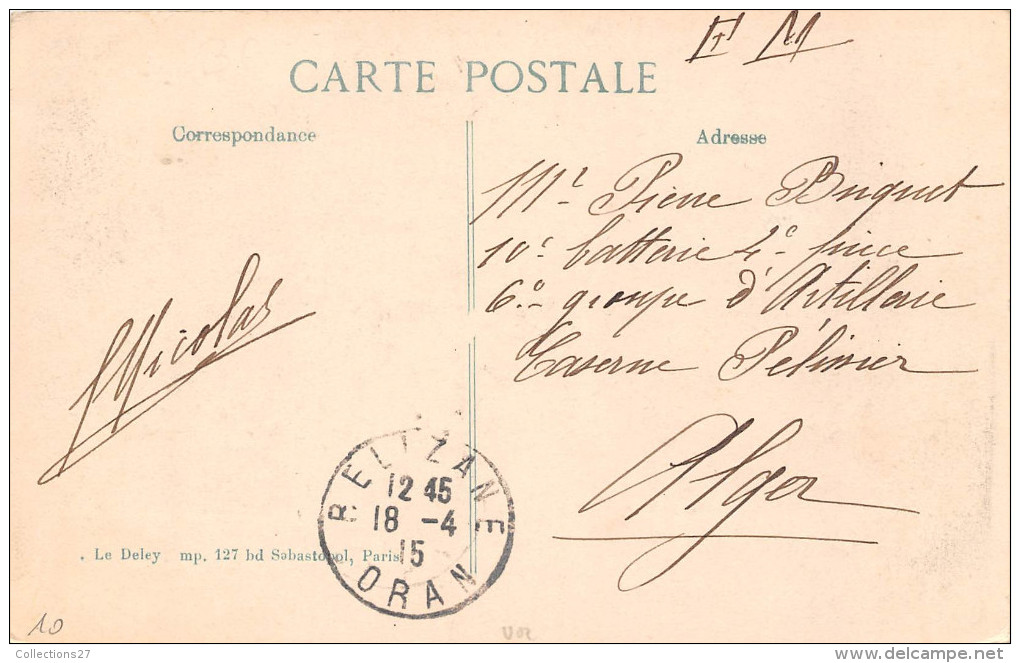 F M
CARTE POSTALE
Correspondance
Adresse
Mr Pierre Briquet
10e batterie 4e pièce
6e groupe d'Artillerie
Caserne Pélissier
Alger
Nicolas
RELIZANE
12 45
18 -4
15
ORAN
Le Deley mp. 127 bd Sébastopol, Paris
10
Collections27
delcampe.net